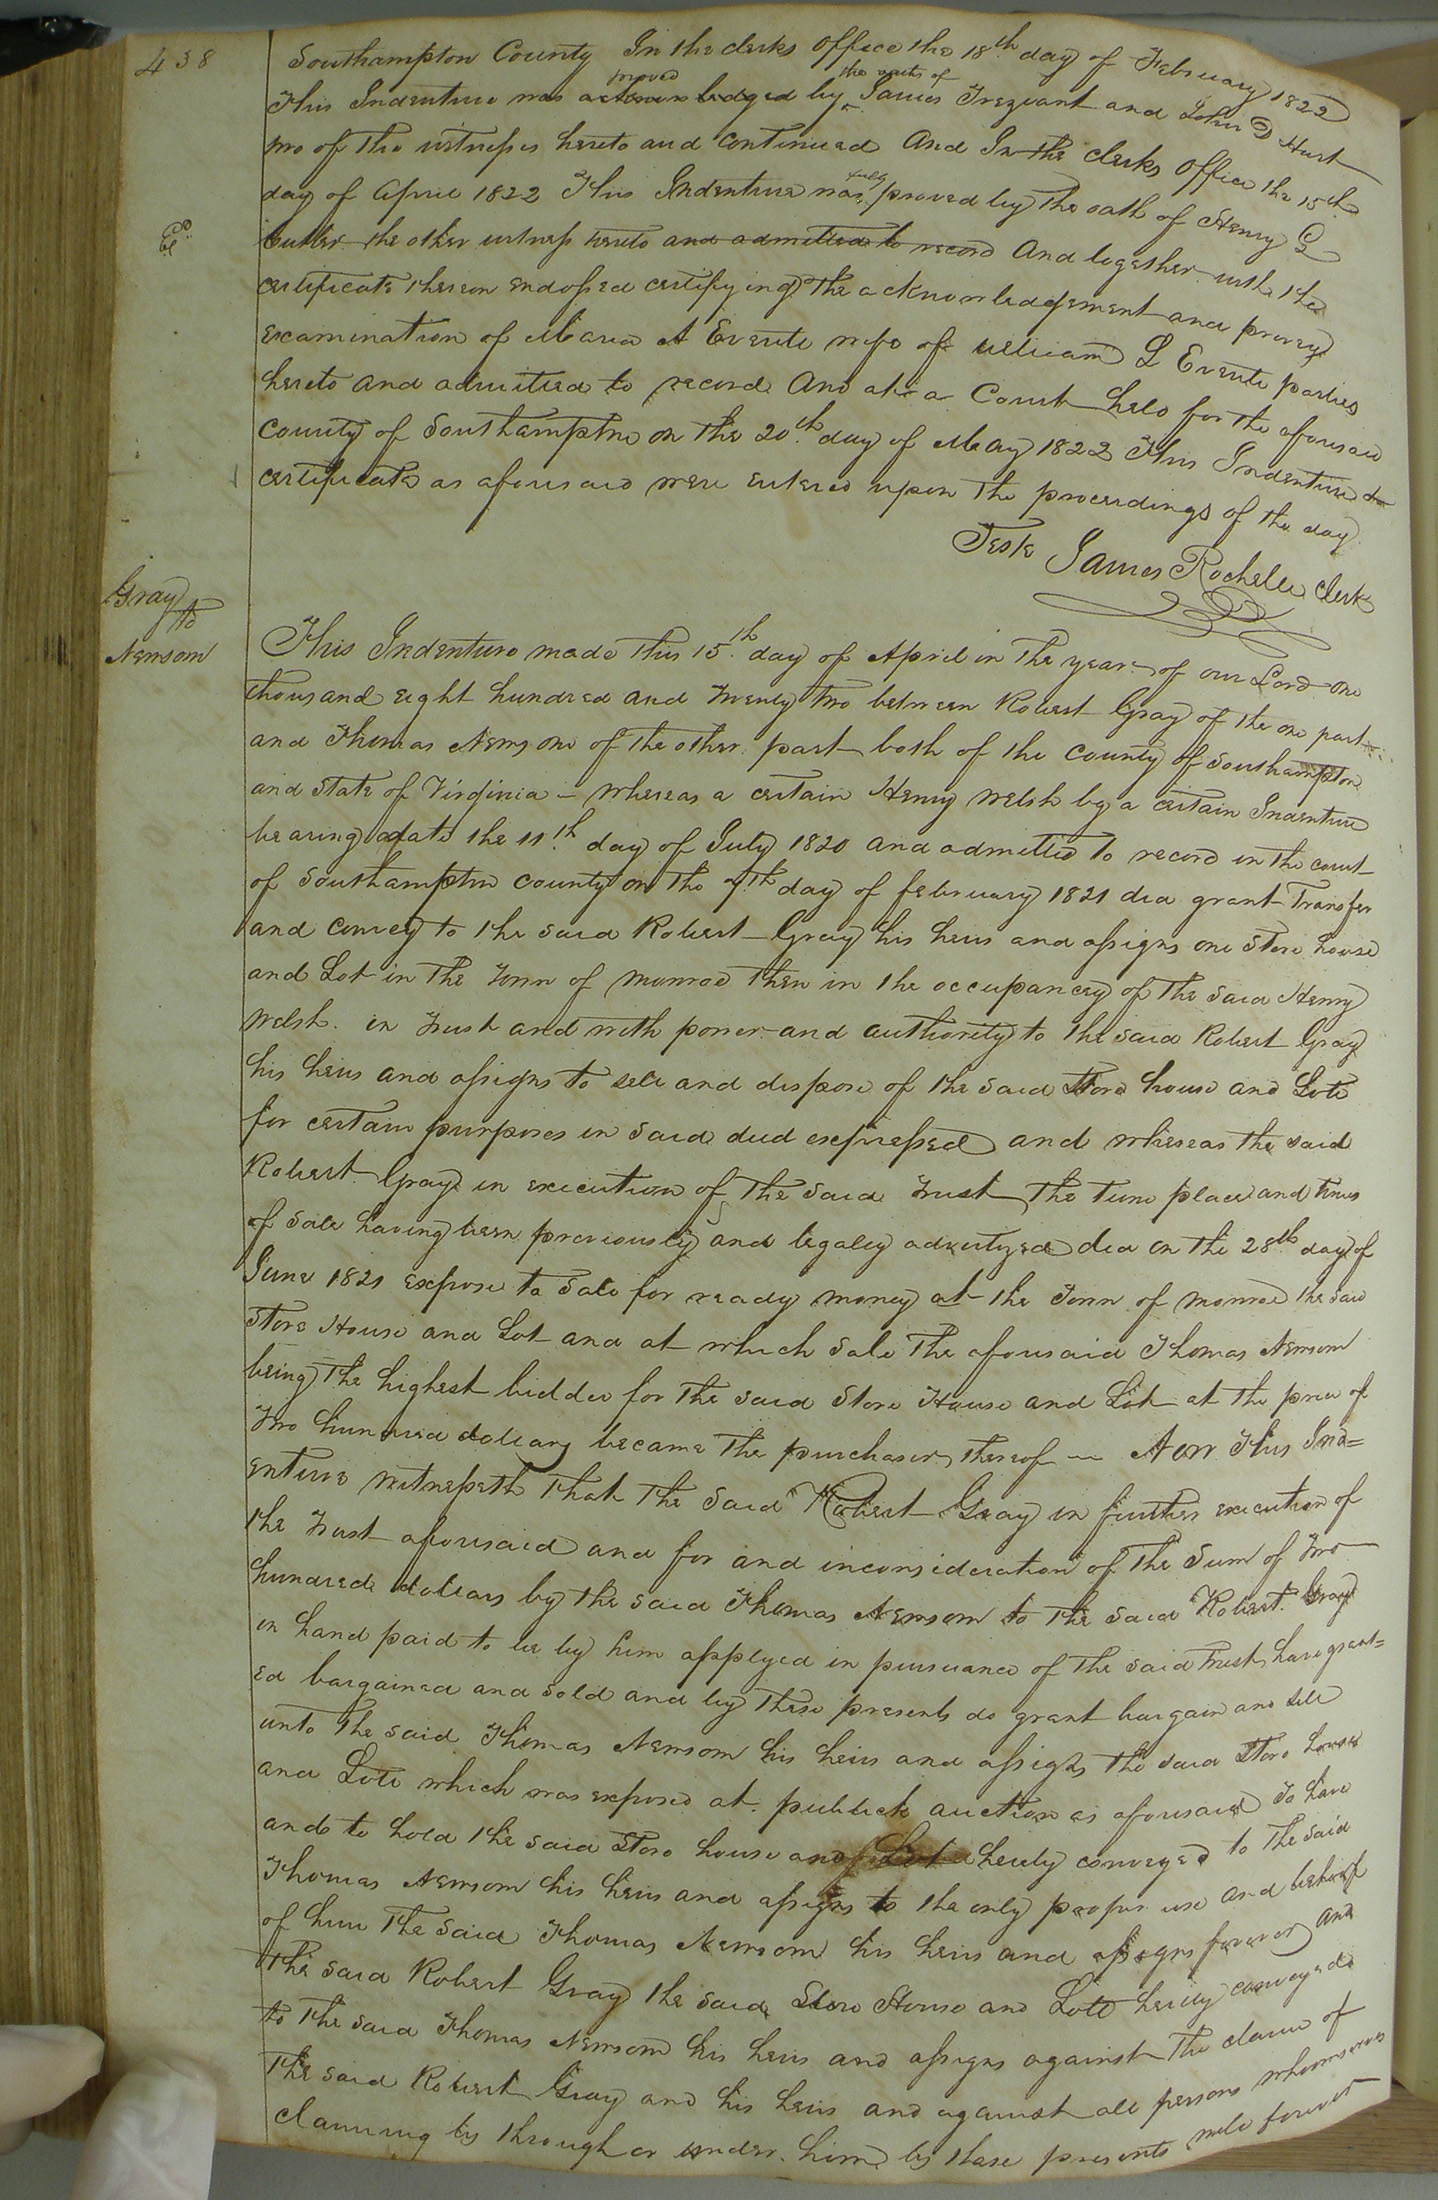 438
Southampton County In the clerks office the 18th day of February 1822
This Indenture was acknowledged proved by the oaths of James Trezvant and John D Hart
two of the witnesses hereto and continued And In the clerks office the 15th
day of April 1822 This Indenture was fully proved by the oath of Henry C
Butler the other witness hereto and admitted to record And together with the
certificate thereon endossed certifying the acknowledgement and privey
examination of Maria A Everite wife of William L Everite parties
hereto and admitted to record And at a Court held for the aforesaid
County of Southampton on the 20th day of May 1822 This Indenture &
certificate as aforesaid were entered upon the proceedings of the day
Teste James Rochelle Clerk
Gray
to
Newsom
This Indenture made this 15th day of April in the year of our Lord one
thousand eight hundred and twenty two between Robert Gray of the one part
and Thomas Newsom of the other part both of the County of Southampton
and State of Virginia – whereas a certain Henry Welsh by a certain Indenture
bearing date the 11th day of July 1820 and admitted to record in the court
of Southampton county on the 7th day of february 1821 did grant Transfer
and convey to the said Robert Gray his heirs and assigns one Store house
and Lot in the Town of Monroe then in the occupancey of the said Henry
Welsh. in Trust and with power and authority to the said Robert Gray
his heirs and assigns to sell and dispose of the said Store house and Lott
for certain purposes in said deed expressed and whereas the said
Robert Gray in execution of the said Trust the time place and terms
of sale having been previously and legaly advertyzed did on the 28th day of
June 1821 expose to Sale for ready money at the Town of Monroe the said
Store House and Lot and at which Sale the aforesaid Thomas Newsom
being the highest bidder for the said Store House and Lot at the price of
Two hundred dollars became the purchaser thereof – Now This Ind=
enture witnesseth that the said Robert Gray in further execution of
the Trust aforesaid and for and inconsideration of the Sum of Two
hundred dollars by the said Thomas Newsom to the said Robert Gray
in hand paid to be by him applyed in pursuance of the said Trust have grant=
ed bargained and sold and by these presents do grant bargain and sell
unto the said Thomas Newsom his heirs and assigns the said Store house
and Lott which was exposed at publick auction as aforesaid To have
and to hold the said Store house and Lot hereby conveyed to the said
Thomas Newsom his heirs and assigns to the only proper use and behoof
of him the said Thomas Newsom his heirs and assigns forever and
the said Robert Gray the said Store House and Lott hereby conveyed
to the said Thomas Newsom his heirs and assigns against the claim of
the said Robert Gray and his heirs and against all persons whomsoever
claiming by through or under him by these presents will forever